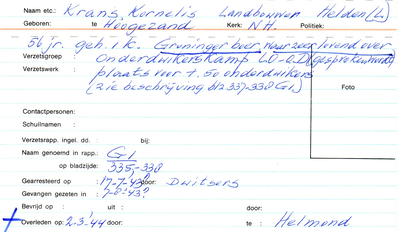 Naam etc.: Krans, Kornelis Landbouwer Helden (L)
Geboren: te Hoogezand Kerk: N.H. Politiek:
56 jr. geh. 1 k. Groninger boer, waar zeer lovend over
Verzetsgroep : Onderduikerskamp LO-O.D. (gesproken wordt)
Verzetswerk : plaats voor ± 50 onderduikers
(zie beschrijving blz 337-338 G1)
Foto
Contactpersonen:
Schuilnaam :
Verzetsrapp. ingel. dd. : bij:
Naam genoemd in rapp.: G1
op bladzijde: 335,-338
Gearresteerd op : 17-7-'43? door: Duitsers
Gevangen gezeten in : 7-8-'43?
Bevrijd op : uit : door:
+ Overleden op: 2-3-'44 door: te : Helmond